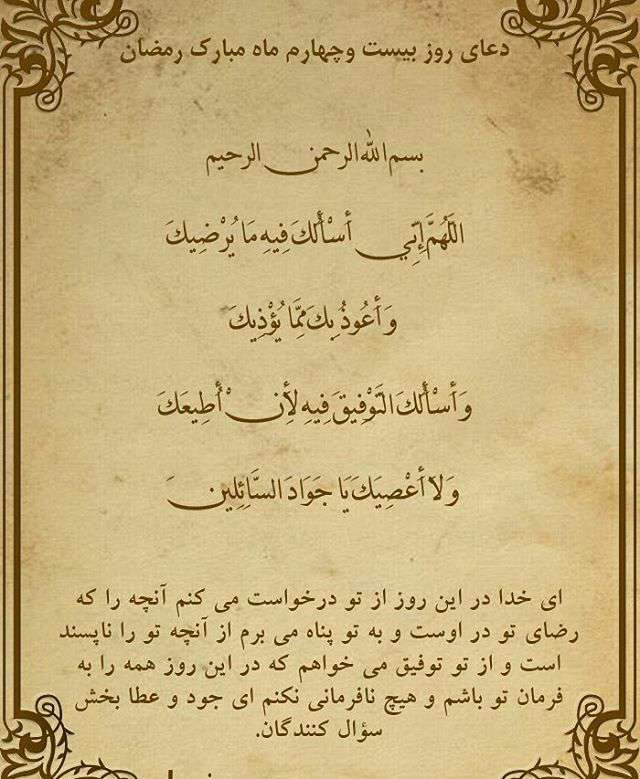 دعای روز بیست وچهارم ماه مبارک رمضان
بسم الله الرحمن الرحيم
اللَّهُمَّ إِنِّي أَسْأَلُكَ فِيهِ مَا يُرْضِيكَ
وَ أَعُوذُ بِكَ مِمَّا يُؤْذِيكَ
وَ أَسْأَلُكَ التَّوْفِيقَ فِيهِ لِأَنْ أُطِيعَكَ
وَ لا أَعْصِيَكَ يَا جَوَادَ السَّائِلِينَ
ای خدا در این روز از تو درخواست می کنم آنچه را که
رضای تو در اوست و به تو پناه می برم از آنچه تو را ناپسند
است و از تو توفیق می خواهم که در این روز همه را به
فرمان تو باشم و هیچ نافرمانی نکنم ای جود و عطا بخش
سؤال کنندگان.